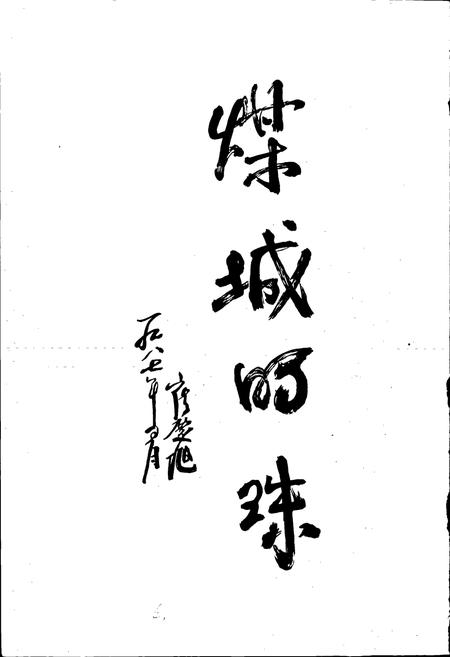 煤城明珠
一九八七年四月